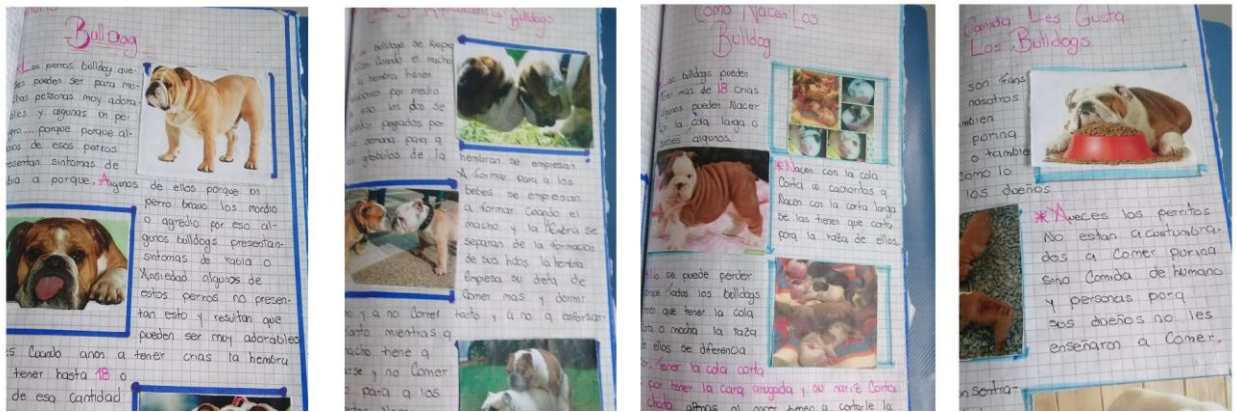 Bulldog
Los perros bulldog ave-
des pueden ser para mu-
chas personas muy adora-
bles y algunas on pe-
gro... porque porque al-
nos de esos perros
esentan sintomas de
bia a porque. Algunos de ellos porque on
perro bravo los mordio
o agredio por eso al-
gunos bulldogs presentan-
sintomas de rabia o
Ansiedad algunos de
estos perros no presen-
tan esto y resultan que
pueden ser muy adorables
Cuando anon a tener crias la hembra
tener hasta 18 o
de esa cantidad
Los Bulldogs
bulldogs se
Cuando el macho
la hembra tienen
por medio
eso los dos se
pegados por
semana para q
globulos de la
hembran se empiesan
A formar para q los
bebes se empiesan
a formar Cuando el
macho y la hembra se
separan de la formacion
de sus hijos la hembra
Empiesa su dieta de
Comer mas y dormir
y a no Correr tanto y a no esforsar-
tanto mientras q
macho tiene q
y no Comer
para q los
Como Nacen Los
Bulldog
Los bulldogs pueden
Tener mas de 18 crias
algunos pueden Nacer
la cola larga o
algunos.
*Nacen con la cola
Corta o cachoritos q
Nacen con la corta larga
se las tienen que corta
porq la raza de ellos
No se puede perder
todos los bulldogs
que tener la cola
o mocha la raza
ellos se diferencia
tener la cola corta
por tener la cara arrugada y su nariz Corta
chata algunos al nacer tienen q cortarle la
Comida Les Gusta
Los Bulldogs
son fans
nosotros
tambien
purina
o tambie
como lo
los dueños
*Aveces los perritos
No estan acustumbra-
dos a Comer purina
sino Comida de humano
y personas porq
sos dueños no les
enseñaron a Comer.